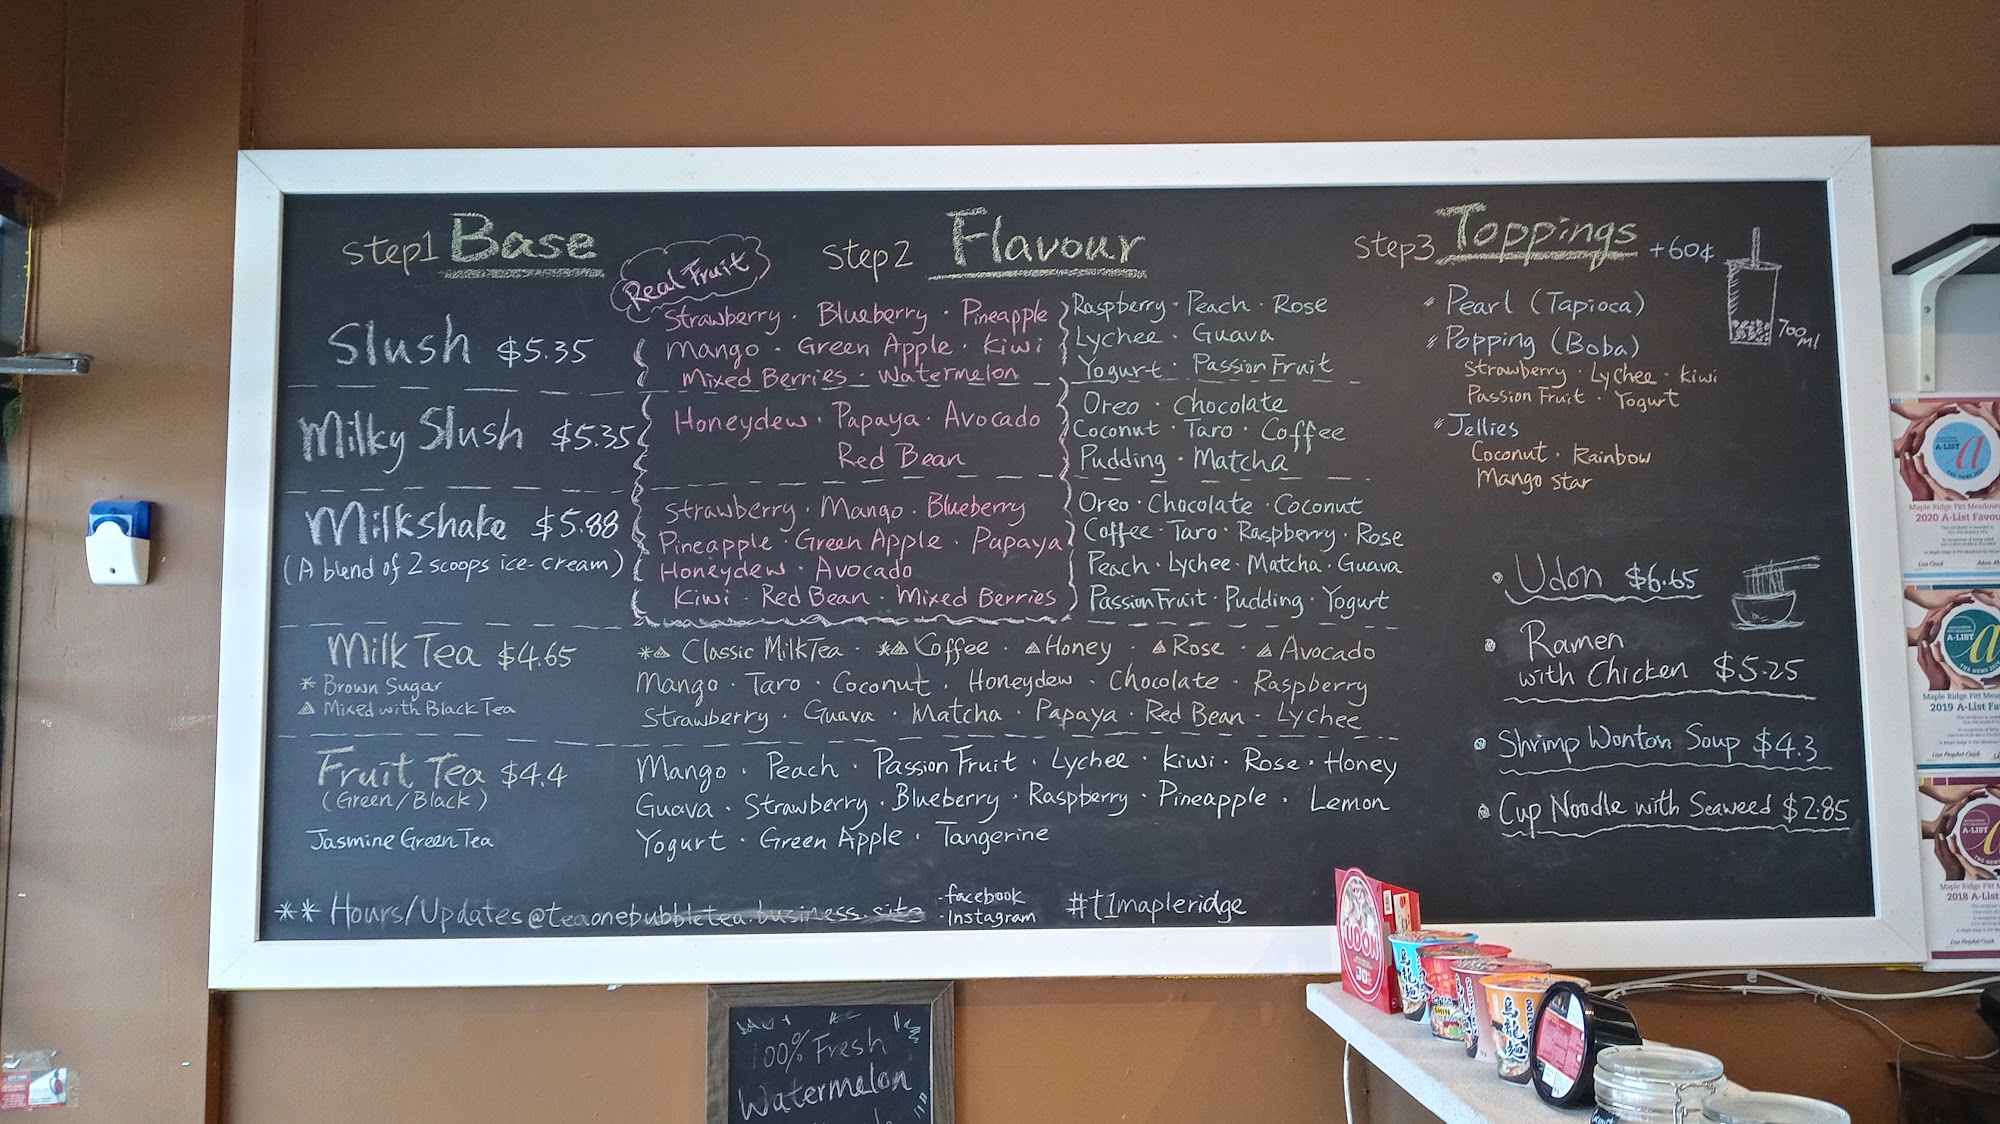 step1 Base
Slush $5.35
Milky Slush $5.35
Milkshake $5.88
(A blend of 2 scoops ice-cream)
Milk Tea $4.65
* Brown Sugar
△ Mixed with Black Tea
Fruit Tea $4.4
(Green/Black)
Jasmine Green Tea
step2 Flavour
Real Fruit
Strawberry · Blueberry · Pineapple
Mango · Green Apple · Kiwi
Mixed Berries · Watermelon
Raspberry · Peach · Rose
Lychee · Guava
Yogurt · Passion Fruit
Honeydew · Papaya · Avocado
Red Bean
Oreo · Chocolate
Coconut · Taro · Coffee
Pudding · Matcha
Strawberry · Mango · Blueberry
Pineapple · Green Apple · Papaya
Honeydew · Avocado
Kiwi · Red Bean · Mixed Berries
Oreo · Chocolate · Coconut
Coffee · Taro · Raspberry · Rose
Peach · Lychee · Matcha · Guava
Passion Fruit · Pudding · Yogurt
*△ Classic Milk Tea · *△ Coffee · △ Honey · △ Rose · △ Avocado
Mango · Taro · Coconut · Honeydew · Chocolate · Raspberry
Strawberry · Guava · Matcha · Papaya · Red Bean · Lychee
Mango · Peach · Passion Fruit · Lychee · Kiwi · Rose · Honey
Guava · Strawberry · Blueberry · Raspberry · Pineapple · Lemon
Yogurt · Green Apple · Tangerine
step3 Toppings +60¢
Pearl (Tapioca)
Popping (Boba)
Strawberry · Lychee · Kiwi
Passion Fruit · Yogurt
Jellies
Coconut · Rainbow
Mango star
700 ml
Udon $6.65
Ramen
with Chicken $5.25
Shrimp Wonton Soup $4.3
Cup Noodle with Seaweed $2.85
** Hours/Updates @teaonebubbletea.business.site
·facebook
·Instagram
#t1mapleridge
100% Fresh
Watermelon
A-LIST
Maple Ridge Pitt Meadows
2020 A-List Favou
A-LIST
Maple Ridge Pitt Mea
2019 A-List Fa
A-LIST
Maple Ridge Pitt M
2018 A-List
UDON
烏龍麺
烏龍麺